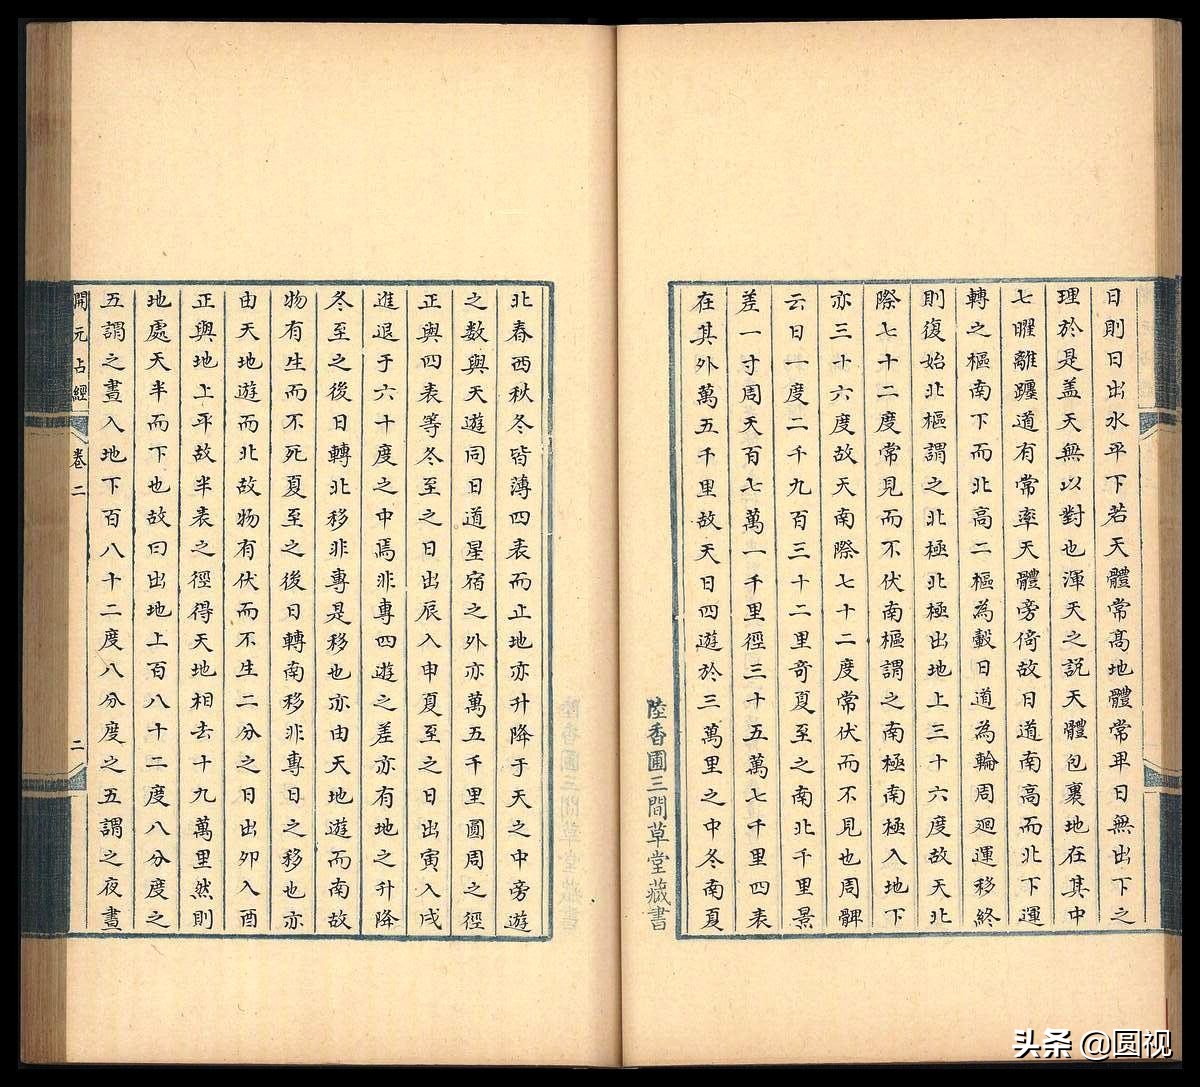 日則日出水平下若天體常高地體常卑日無出下之
理於是蓋天無以對也渾天之説天體包裹地在其中
七曜離躔道有常率天體旁倚故日道南高而北下運
轉之樞南下而北高二樞為轂日道為輪周廻運移終
則復始北樞謂之北極北極出地上三十六度故天北
際七十二度常見而不伏南樞謂之南極南極入地下
亦三十六度故天南際七十二度常伏而不見也周髀
云日一度二千九百三十二里奇夏至之南北千里景
差一寸周天百七萬一千里徑三十五萬七千里四表
在其外萬五千里故天日四遊於三萬里之中冬南夏
陸香圃三間草堂藏書
北春西秋冬皆薄四表而止地亦升降于天之中旁遊
之數與天遊同日道星宿之外亦萬五千里圓周之徑
正與四表等冬至之日出辰入申夏至之日出寅入戌
進退于六十度之中焉非專四遊之差亦有地之升降
冬至之後日轉北移非專是移也亦由天地遊而南故
物有生而不死夏至之後日轉南移非專日之移也亦
由天地遊而北故物有伏而不生二分之日出卯入酉
正與地上平故半表之徑得天地相去十九萬里然則
地處天半而下也故曰出地上百八十二度八分度之
五謂之晝入地下百八十二度八分度之五謂之夜晝
開元占經
卷二
二
头条 @圆视